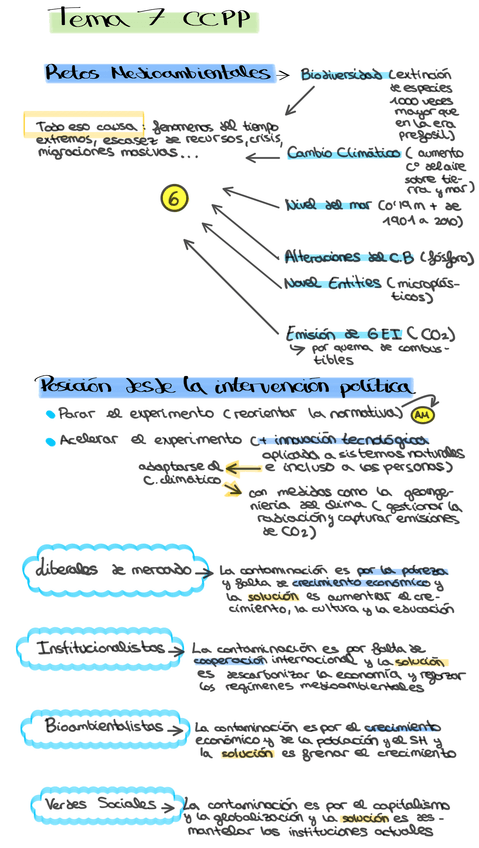 Tema 7 CCPP
Retos Medioambientales → Biodiversidad (extinción
de especies
1000 veces
mayor que
en la era
prefosil)
Todo eso causa: fenomenos del tiempo
extremos, escasez de recursos, crisis,
migraciones masivas...
Cambio Climático (aumento
Cº del aire
sobre tie-
rra y mar)
6
Nivel del mar (0'19m + de
1901 a 2010)
Alteraciones del C.B (fósforo)
Novel Entities (microplás-
ticos)
Emisión de GEI (CO2)
↳ por quema de combus-
tibles
Posición desde la intervención política
• Parar el experimento (reorientar la normativa) AM
• Acelerar el experimento (+ innovación tecnológica
aplicada a sistemas naturales
e incluso a las personas)
adaptarse al
C. climático
con medidas como la geoinge-
niería del clima (gestionar la
radiación y capturar emisiones
de CO2)
liberales de mercado → La contaminación es por la pobreza
y falta de crecimiento económico y
la solución es aumentar el cre-
cimiento, la cultura y la educación
Institucionalistas → La contaminación es por falta de
cooperación internacional y la solución
es descarbonizar la economía y reforzar
los regímenes medioambientales
Bioambientalistas → La contaminación es por el crecimiento
económico y de la población y el SH y
la solución es frenar el crecimiento
Verdes Sociales → La contaminación es por el capitalismo
y la globalización y la solución es des-
mantelar las instituciones actuales